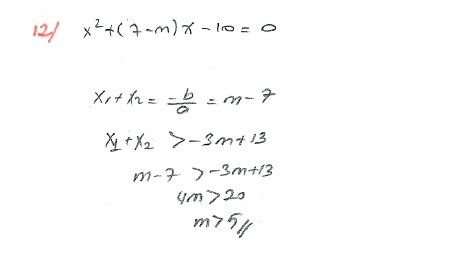 12/ x²+(7-m)x-10=0
x₁+x₂ = -b/a = m-7
x₁+x₂ > -3m+13
m-7 > -3m+13
4m>20
m>5//